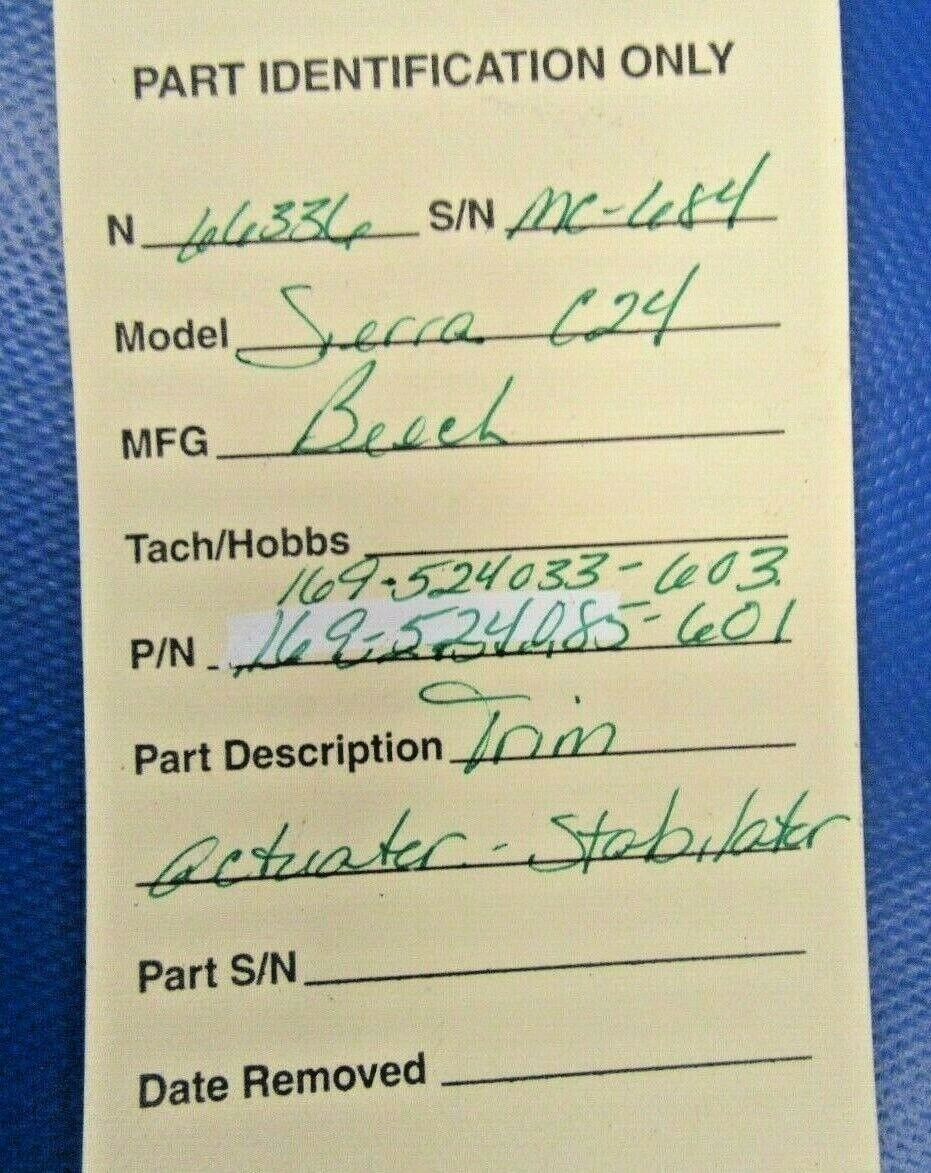 PART IDENTIFICATION ONLY
N 66336 S/N MC-684
Model Sierra C24
MFG Beech
Tach/Hobbs
169-524033-603
P/N 169-524085-601
Part Description Trim
actuater - Stabilater
Part S/N
Date Removed